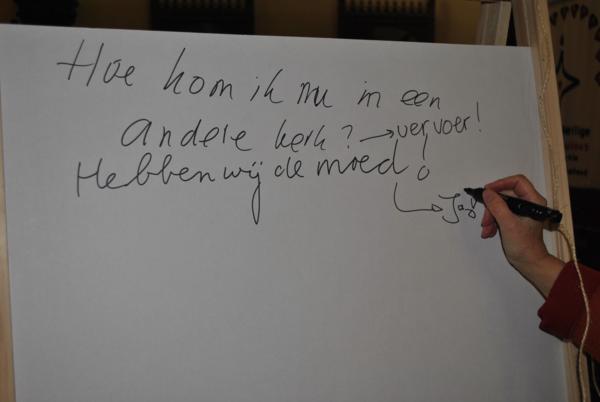 Hoe kom ik nu in een
andere kerk? → vervoer!
Hebben wij de moed